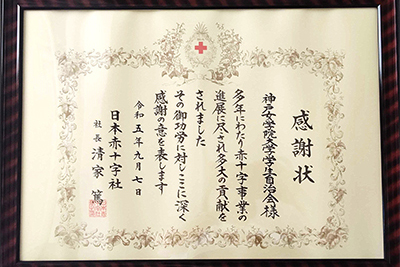 感謝状
神戸女学院大学学生自治会様
多年にわたり赤十字事業の
進展に尽され多大の貢献を
されました
その御功労に対しここに深く
感謝の意を表します
令和五年九月七日
日本赤十字社
社長 清家 篤